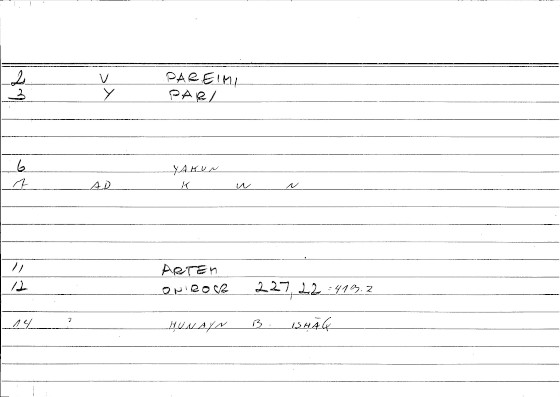 2 V PAREIMI
3 Y PARI
6 YAKUN
7 AD K W N
11 ARTEM
12 ONIROCR 227,22 = 419.2
14 ? HUNAYN B. ISHĀQ